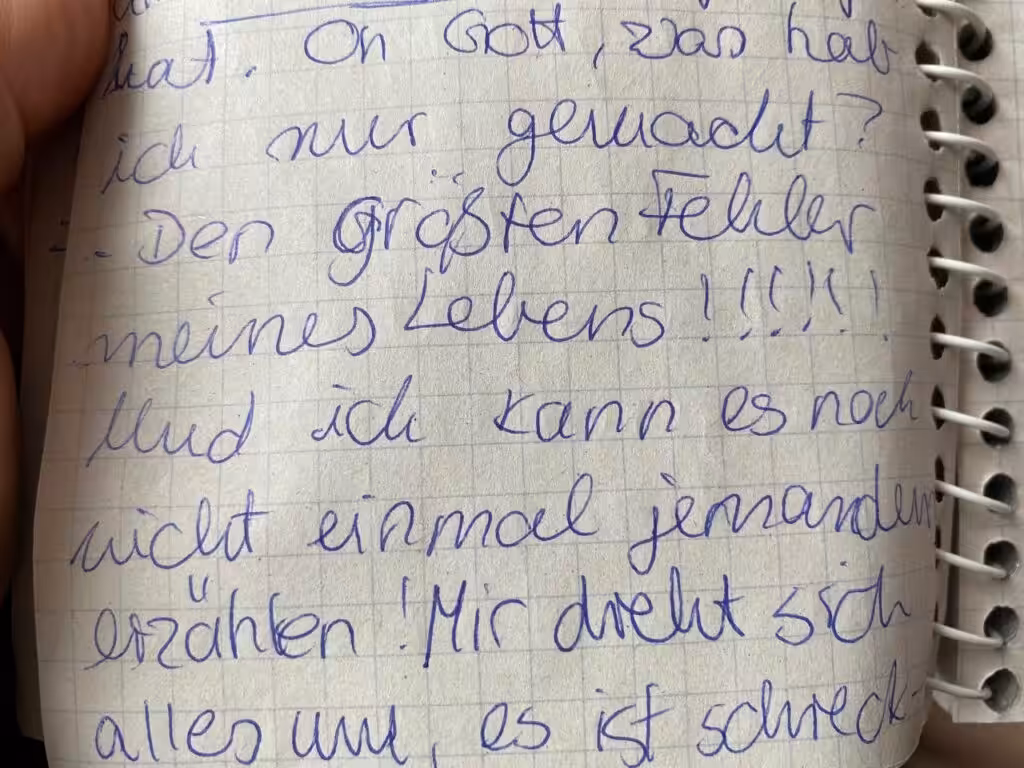 hat. Oh Gott, was hab
ich nur gemacht?
. Den größten Fehler
meines Lebens!!!!!!
Und ich kann es noch
nicht einmal jemandem
erzählen! Mir dreht sich
alles um, es ist schreck-